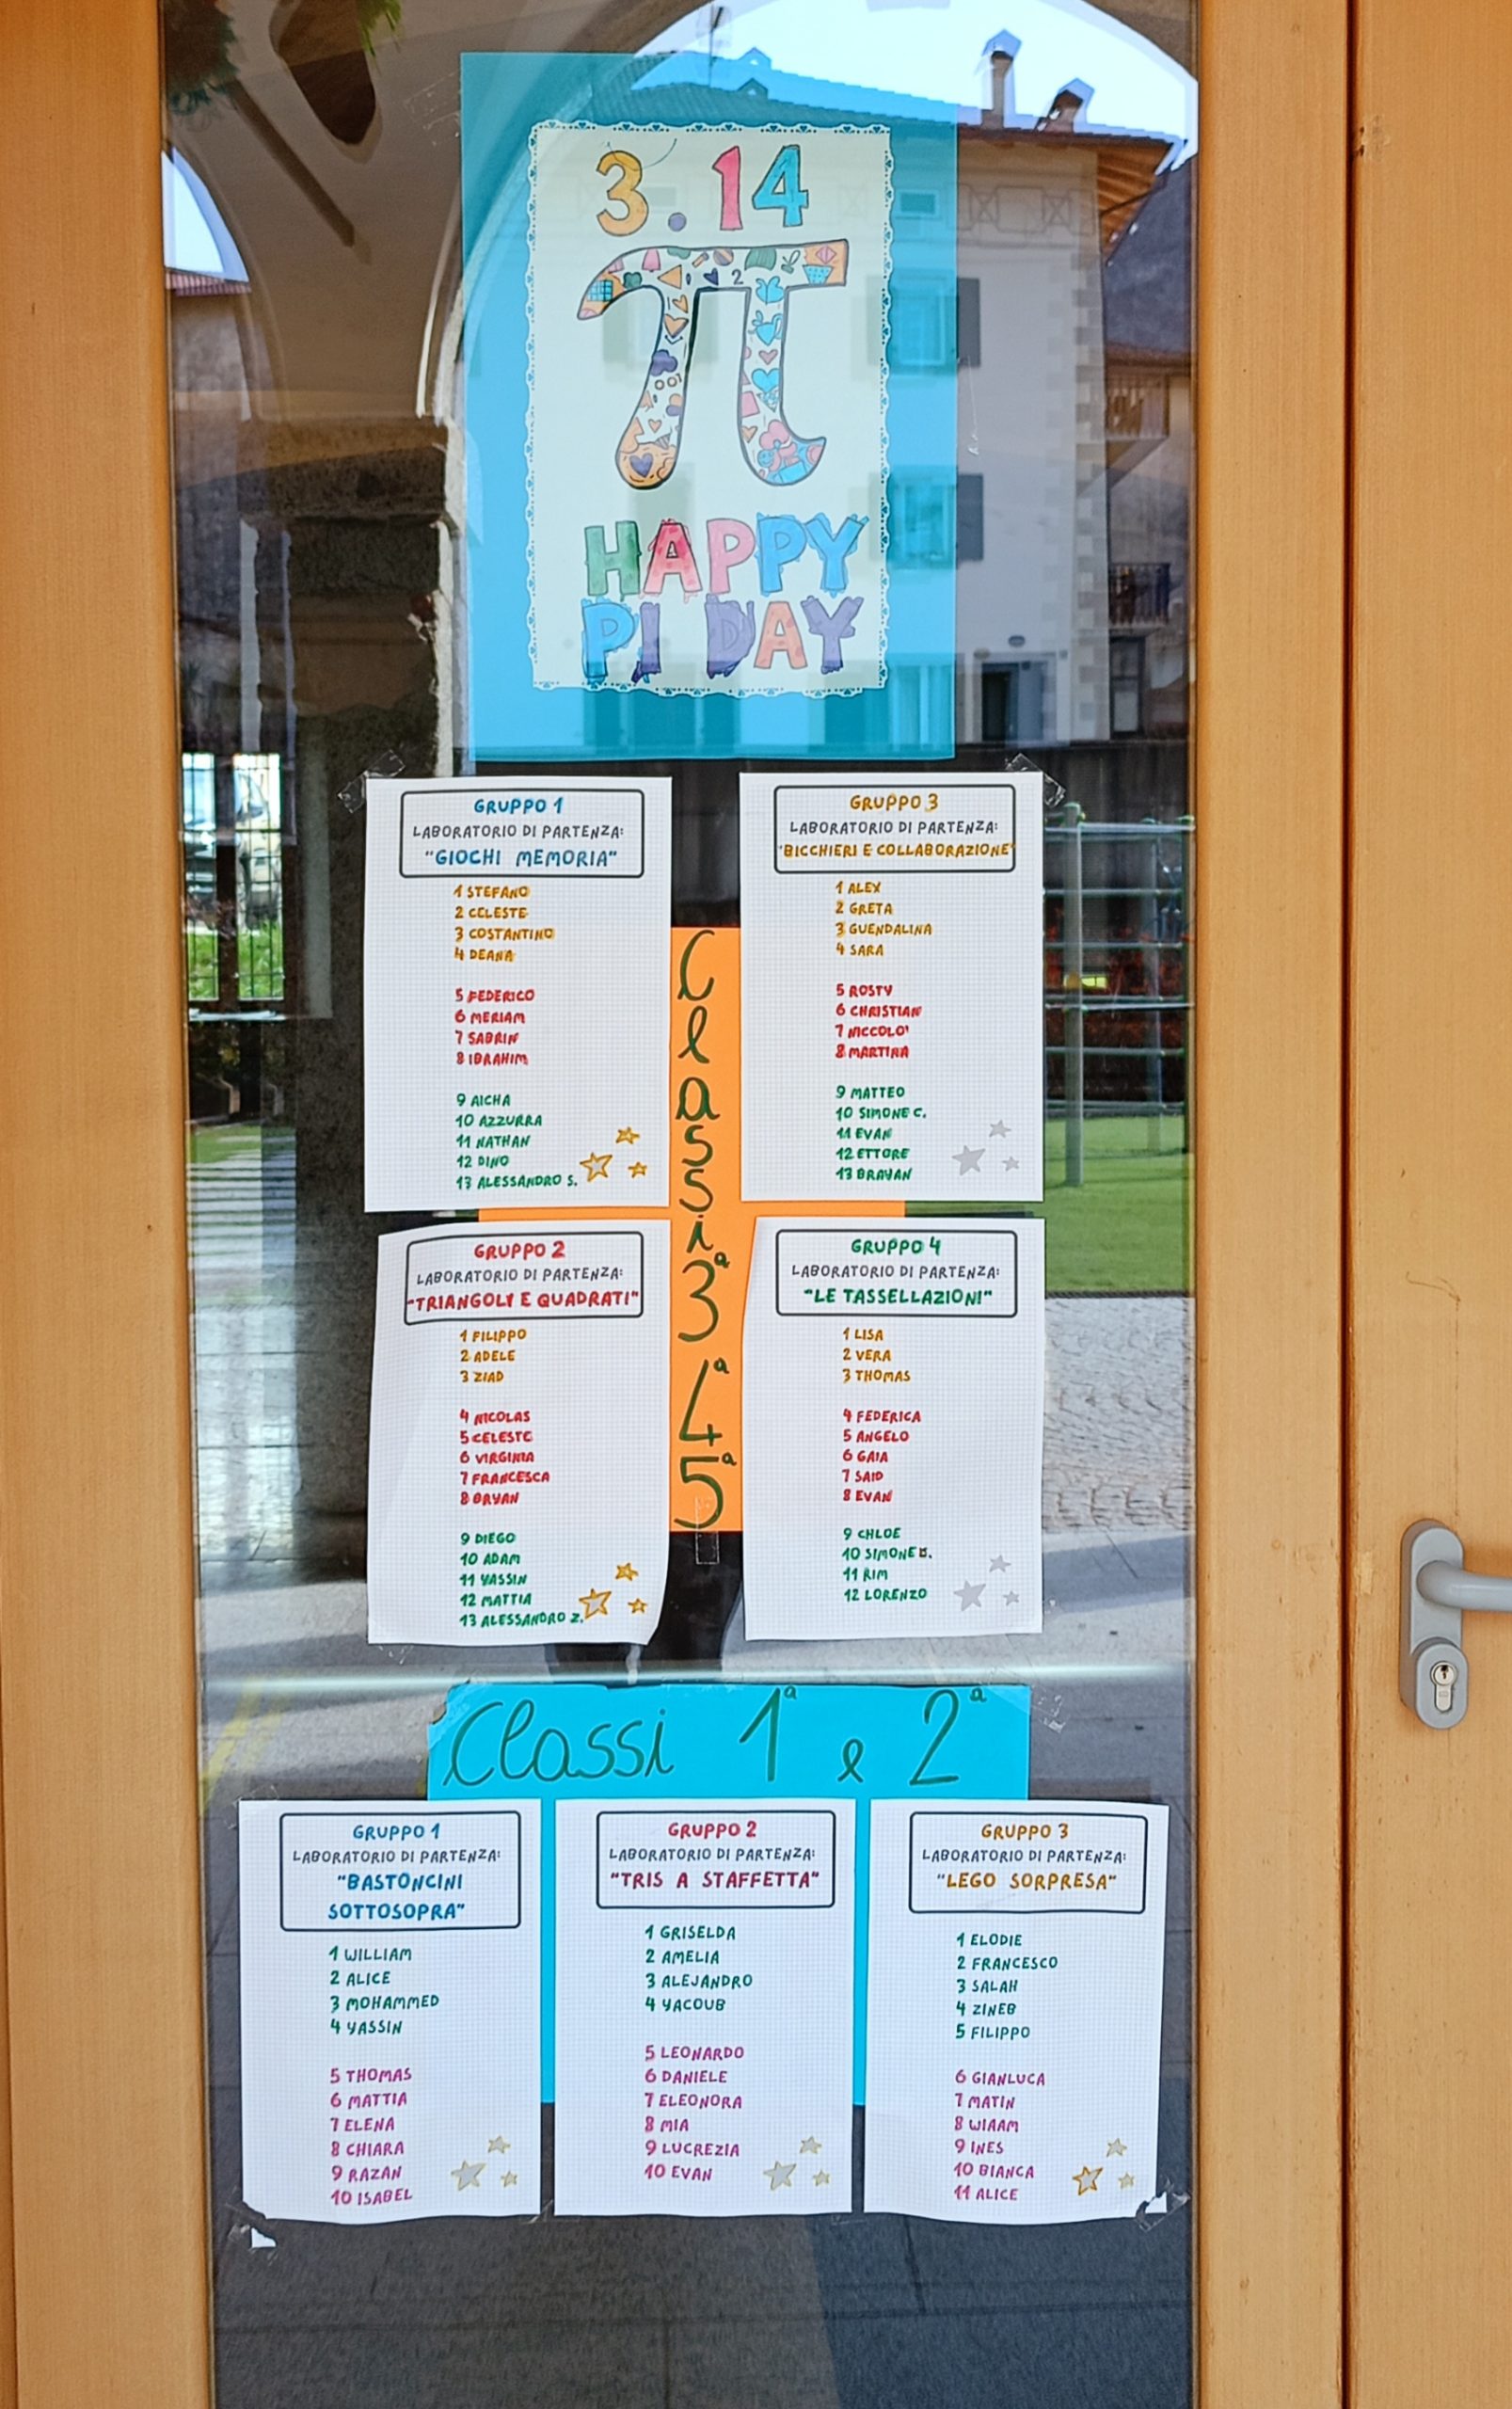 3.14
π
HAPPY
PI DAY
GRUPPO 1
LABORATORIO DI PARTENZA:
"GIOCHI MEMORIA"
1 STEFANO
2 CELESTE
3 COSTANTINO
4 DEANA
5 FEDERICO
6 MERIAM
7 SABRIN
8 IBRAHIM
9 AICHA
10 AZZURRA
11 NATHAN
12 DINO
13 ALESSANDRO S.
GRUPPO 3
LABORATORIO DI PARTENZA:
"BICCHIERI E COLLABORAZIONE"
1 ALEX
2 GRETA
3 GUENDALINA
4 SARA
5 ROSTY
6 CHRISTIAN
7 NICCOLO'
8 MARTINA
9 MATTEO
10 SIMONE C.
11 EVAN
12 ETTORE
13 BRAYAN
Classi
3ª
4ª
5ª
GRUPPO 2
LABORATORIO DI PARTENZA:
"TRIANGOLI E QUADRATI"
1 FILIPPO
2 ADELE
3 ZIAD
4 NICOLAS
5 CELESTE
6 VIRGINIA
7 FRANCESCA
8 BRYAN
9 DIEGO
10 ADAM
11 YASSIN
12 MATTIA
13 ALESSANDRO Z.
GRUPPO 4
LABORATORIO DI PARTENZA:
"LE TASSELLAZIONI"
1 LISA
2 VERA
3 THOMAS
4 FEDERICA
5 ANGELO
6 GAIA
7 SAID
8 EVAN
9 CHLOE
10 SIMONE
11 RIM
12 LORENZO
Classi 1ª e 2ª
GRUPPO 1
LABORATORIO DI PARTENZA:
"BASTONCINI
SOTTOSOPRA"
1 WILLIAM
2 ALICE
3 MOHAMMED
4 YASSIN
5 THOMAS
6 MATTIA
7 ELENA
8 CHIARA
9 RAZAN
10 ISABEL
GRUPPO 2
LABORATORIO DI PARTENZA:
"TRIS A STAFFETTA"
1 GRISELDA
2 AMELIA
3 ALEJANDRO
4 YACOUB
5 LEONARDO
6 DANIELE
7 ELEONORA
8 MIA
9 LUCREZIA
10 EVAN
GRUPPO 3
LABORATORIO DI PARTENZA:
"LEGO SORPRESA"
1 ELODIE
2 FRANCESCO
3 SALAH
4 ZINEB
5 FILIPPO
6 GIANLUCA
7 MATIN
8 WIAAM
9 INES
10 BIANCA
11 ALICE